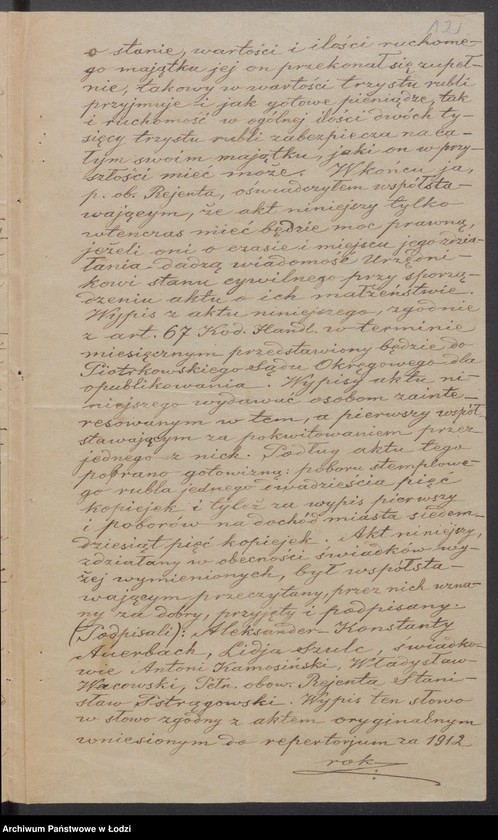 121
o stanie, wartości i ilości ruchome-
go majątku jej on przekonał się zupeł-
nie, takowy w wartości trzystu rubli
przyjmuje i jak gotowe pieniądze, tak
i ruchomość w ogólnej ilości dwóch ty-
sięcy trzystu rubli zabezpiecza na ca-
łym swoim majątku, jaki on w przy-
szłości mieć może. W końcu ja,
p. ob. Rejenta, oświadczyłem współsta-
wającym, że akt niniejszy tylko
wtenczas mieć będzie moc prawną,
jeżeli oni o czasie i miejscu jego zdzia-
łania dadzą wiadomość Urzędni-
kowi stanu cywilnego przy sporzą-
dzeniu aktu o ich małżeństwie.
Wypis z aktu niniejszego, zgodnie
z art. 67 Kod. Handl. w terminie
miesięcznym przedstawiony będzie do
Piotrkowskiego Sądu Okręgowego dla
opublikowania. Wypisy aktu ni-
niejszego wydawać osobom zainte-
resowanym w tem, a pierwszy współ-
stawającym za pokwitowaniem przez
jednego z nich. Podług aktu tego
pobrano gotowizną: poboru stemplowe-
go rubla jednego dwadzieścia pięć
kopiejek i tyleż za wypis pierwszy
i poborów na dochód miasta siedem-
dziesiąt pięć kopiejek. Akt niniejszy,
zdziałany w obecności świadków wy-
żej wymienionych, był współsta-
wającym przeczytany, przez nich uzna-
ny za dobry, przyjęty i podpisany.
(Podpisali): Aleksander-Konstanty
Auerbach, Lidja Szulc, świadko-
wie Antoni Kamosiński, Władysław
Wacowski, Pełn. obow. Rejenta Stani-
sław Pstrągowski. Wypis ten słowo
w słowo zgodny z aktem oryginalnym
wniesionym do repertorjum za 1912
rok
Archiwum Państwowe w Łodzi